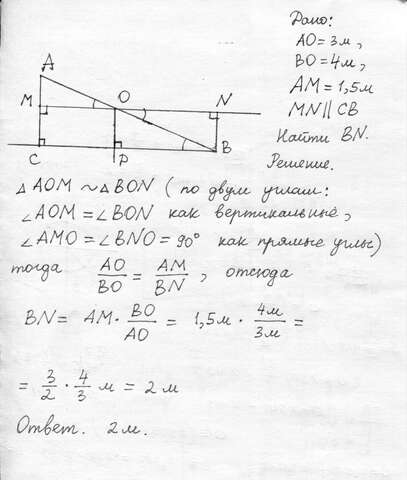 Дано:
AO = 3м,
BO = 4м,
AM = 1,5м
MN || CB
Найти BN.
Решение.
A
M
O
N
C
P
B
△ AOM ~ △ BON ( по двум углам:
∠AOM = ∠BON как вертикальные,
∠AMO = ∠BNO = 90° как прямые углы)
тогда AO/BO = AM/BN , отсюда
BN = AM · BO/AO = 1,5м · 4м/3м =
= 3/2 · 4/3 м = 2 м
Ответ. 2м.